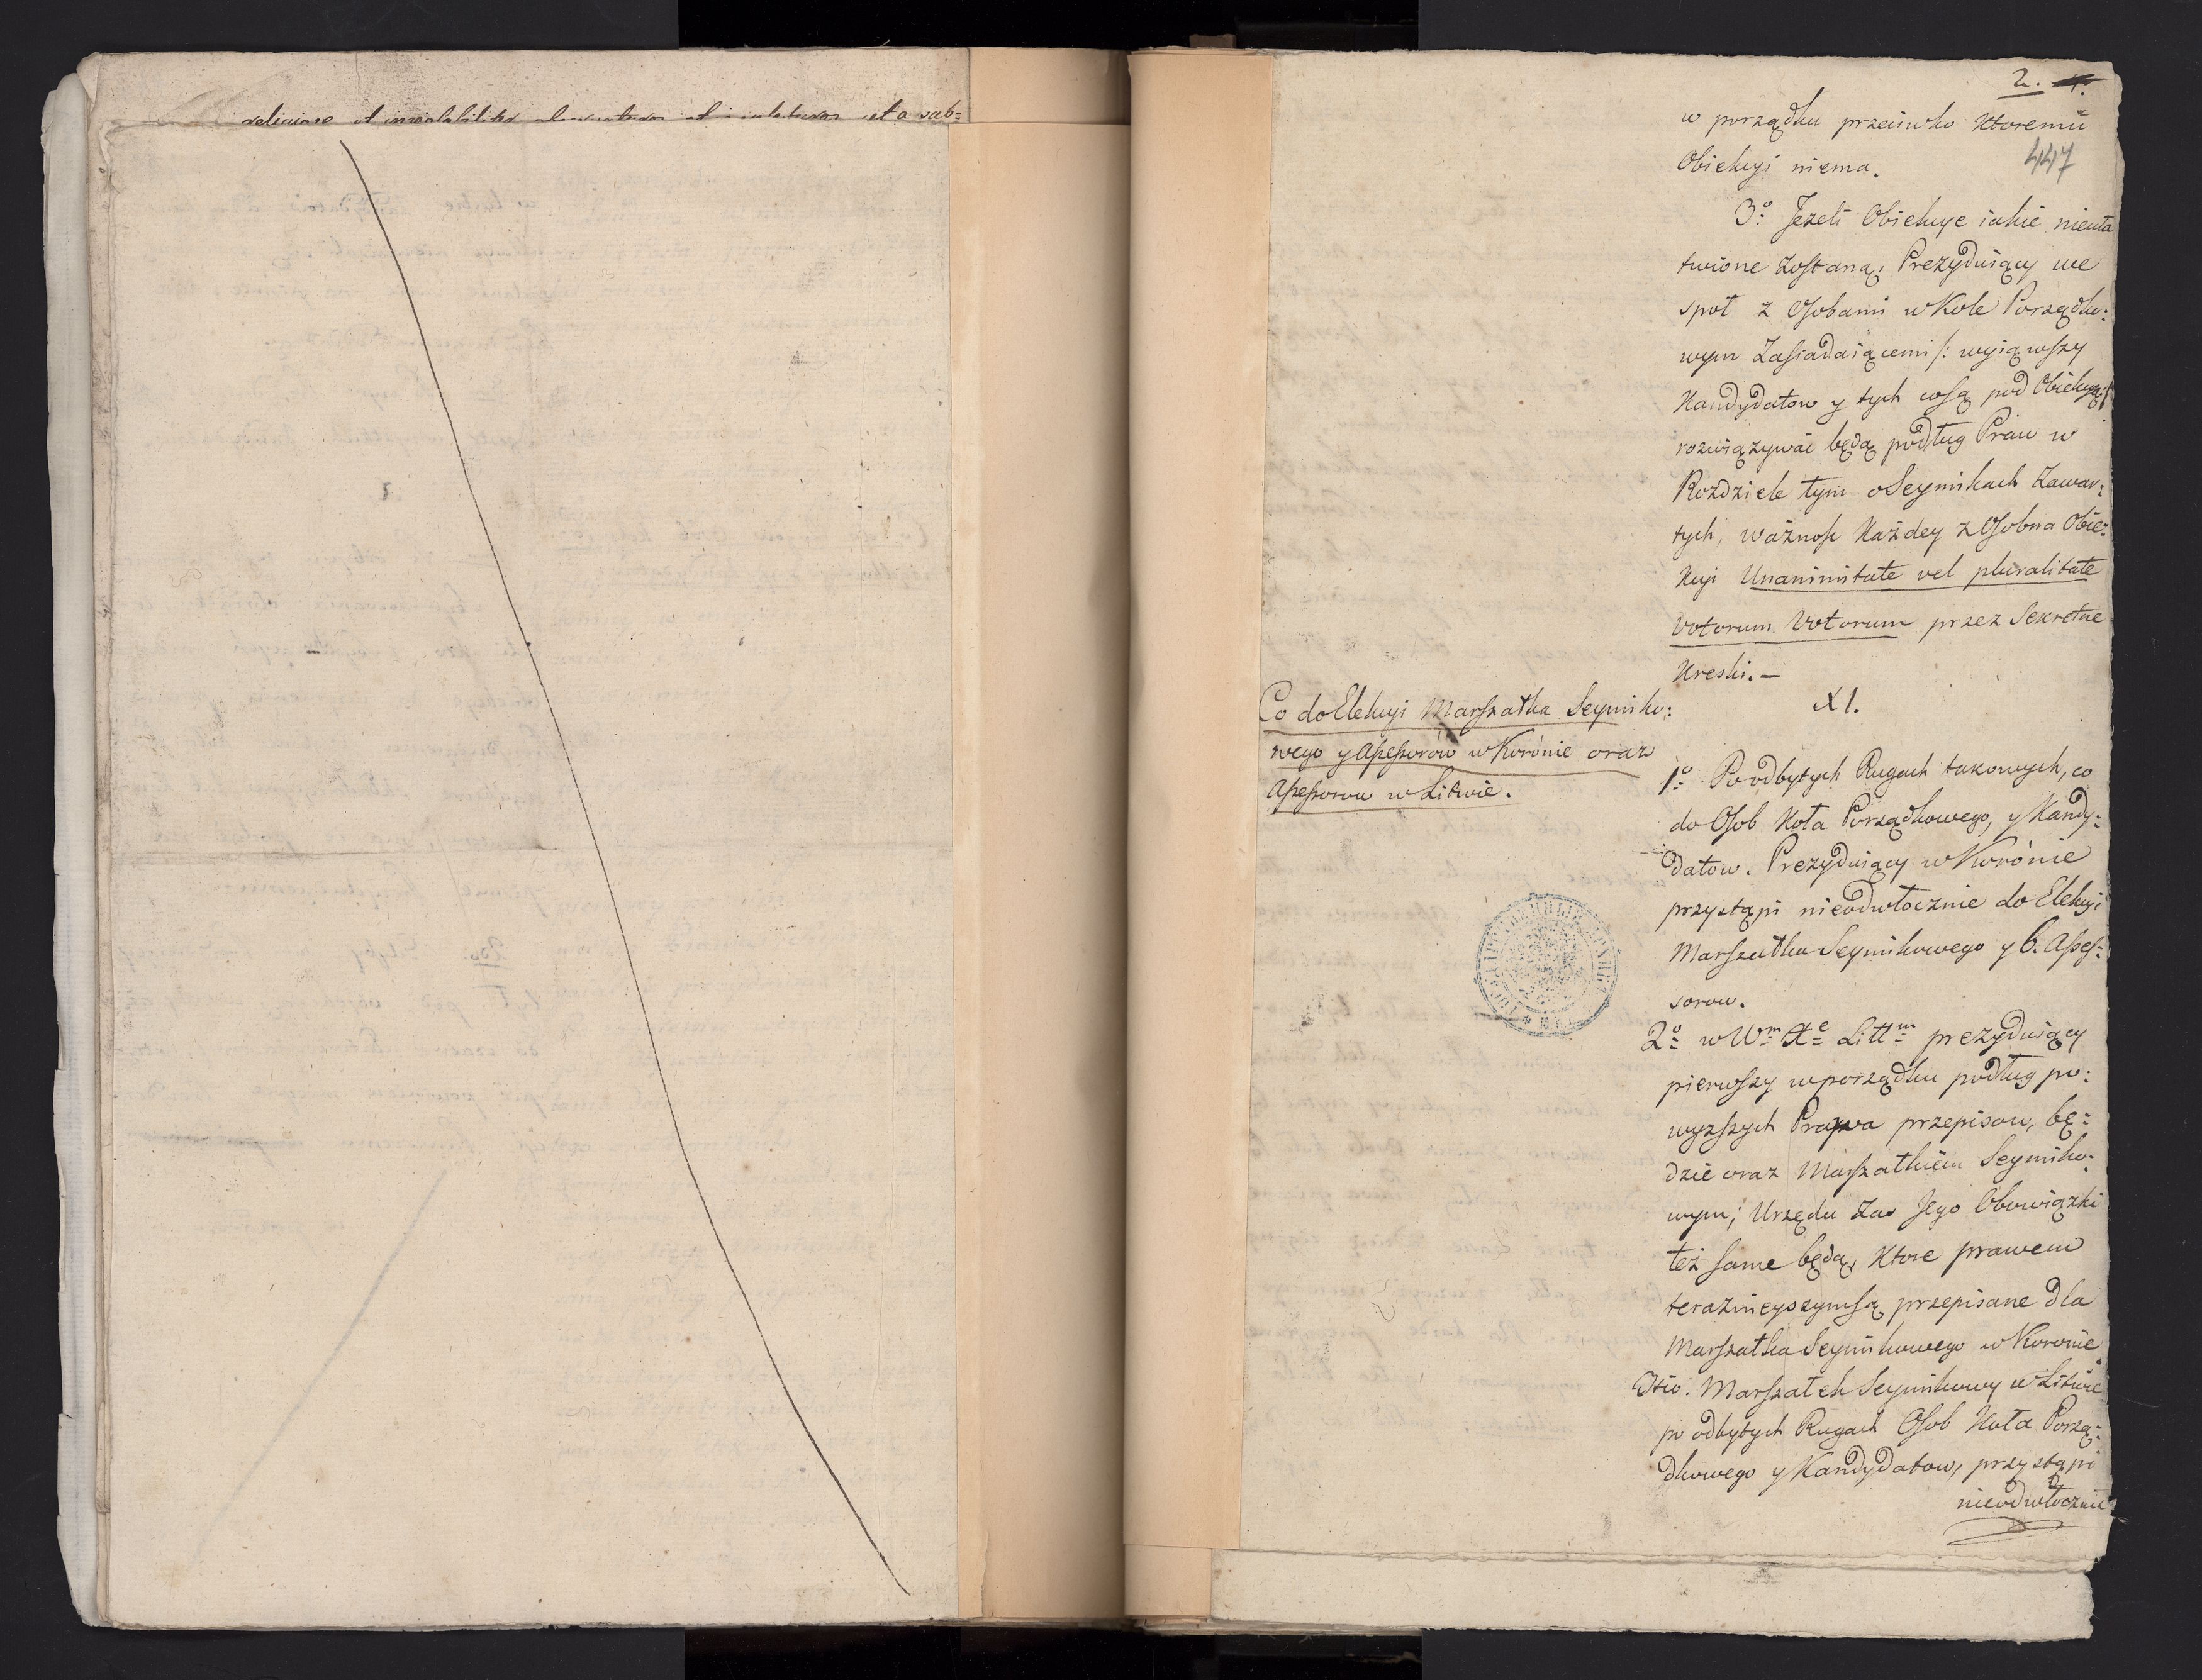 religiose et inviolabiliter et a sub=
2. 4.
w porządku przeciwko Ktoremu
447
Obiekcyi niema.
3º Jezeli Obiekcye iakie nieuła
twione zostaną, Prezyduiący we
społ z Osobami w Kole Porządko:
wym Zasiadaiącemi /: wyiąwszy
Kandydatow y tych cosą pod Obiekcyą:/
rozwiązywać będą podług Praw w
Rozdziele tym oSeymikach Zawar:
tych, ważnośc Każdey z Osobna Obie:
Kcyi Unanimitate vel pluralitate
Votorum Votorum przez Sekretne
Kreski. —
Co do Elekcyi Marszałka Seymiko:
wego y Assessorów w Korónie oraz
Assessorow w Litwie.
XI.
1º Po odbytych Rugach takowych, co
do Osob Koła Porządkowego, y Kandy:
datow. Prezyduiący w Korónie
przystąpi nieodwłocznie do Elekcyi
Marszałka Seymikowego y 6. Asses:
sorow.
2º w Wm Xe Littm prezyduiący
pierwszy w porządku podług po:
wyzszych Prawa przepisow, bę:
dzie oraz Marszałkiem Seymiko:
wym; Urzędu Zas Jego Obowiązki
też same będą, Ktore prawem
teraznieyszym są przepisane dla
Marszałka Seymikowego w Koronie
3tio. Marszałek Seymikowy w Litwie
po odbytych Rugach Osob Koła Porzą:
dkowego y Kandydatow, przystąpi
nieodwłocznie